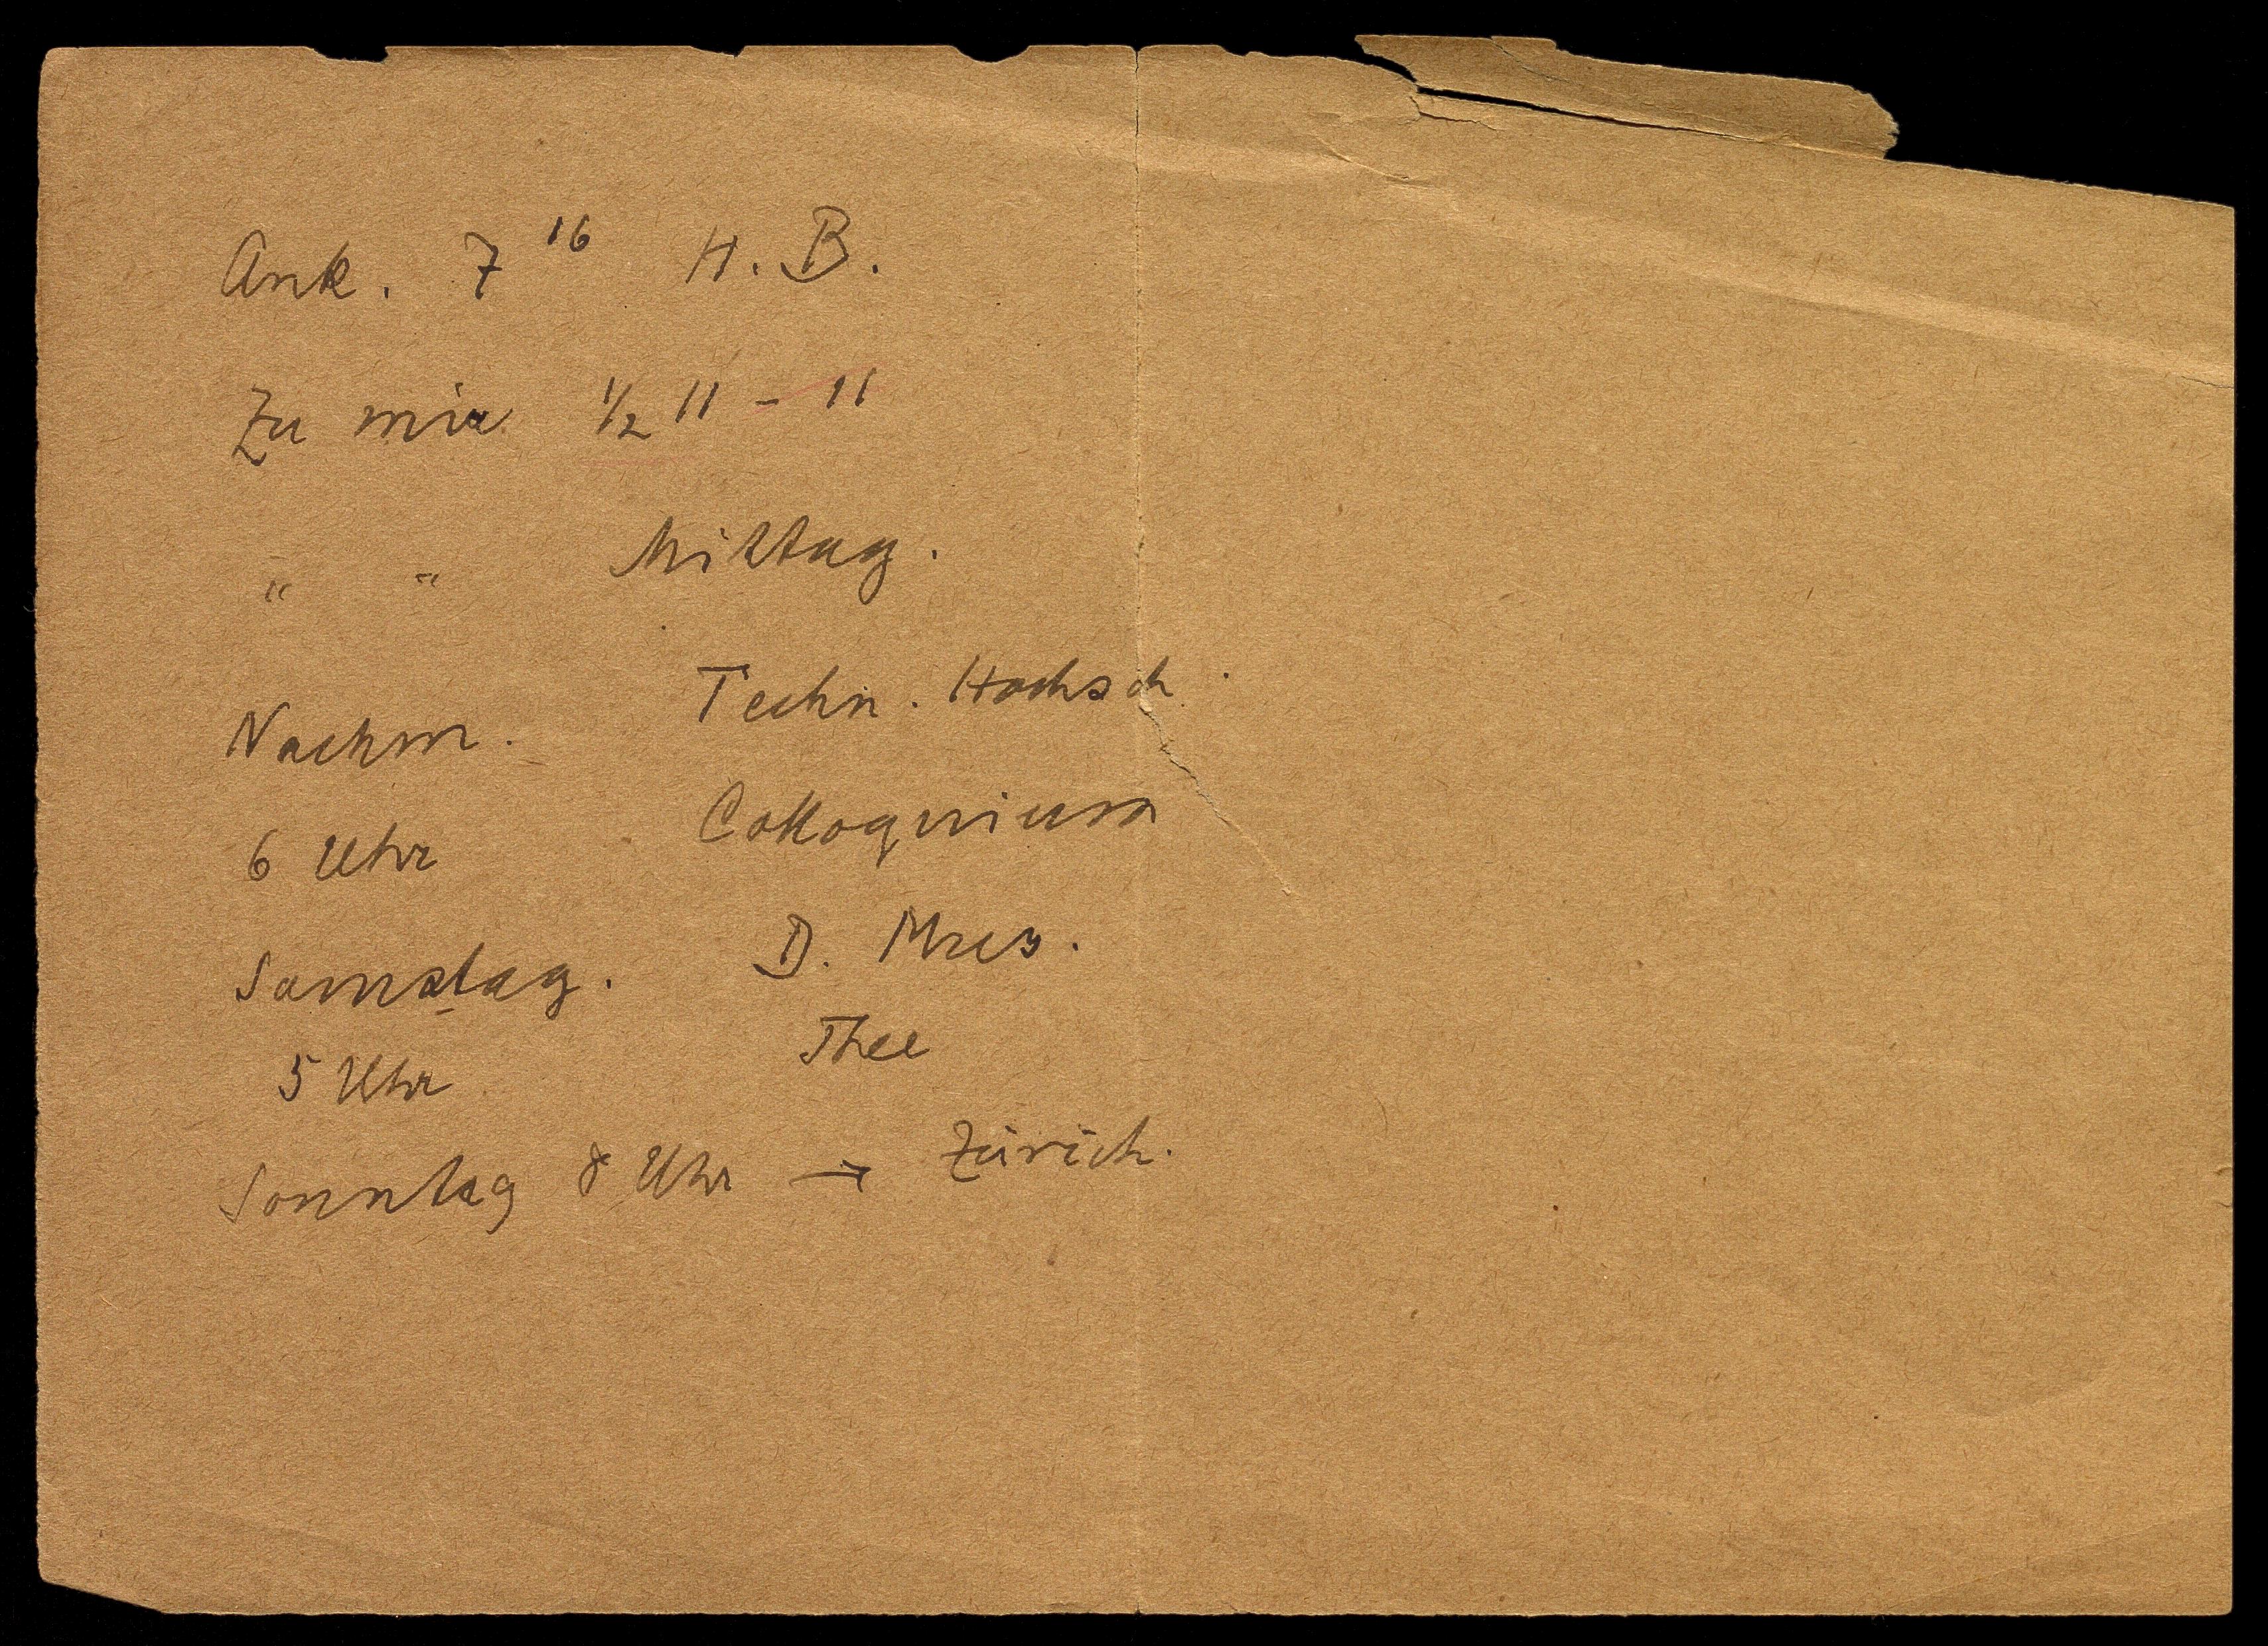 Ank. 7 16 H. B.
Zu mir 1/2 11 - 11
" " Mittag.
Nachm. Techn. Hochsch.
6 Uhr Colloquium
Samstag. D. Mus.
5 Uhr Thee
Sonntag 8 Uhr → Zürich.